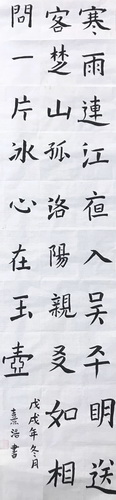 寒雨連江亱入吳平明送
客楚山孤洛陽親友如相
問一片冰心在玉壺
戊戌年冬月
浩書